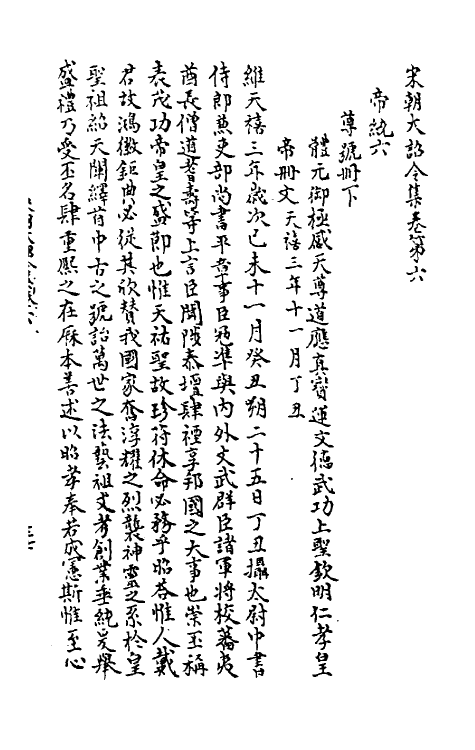 宋朝大詔令集卷第六
帝統六
尊號冊下
體元御極感天尊道應真寶運文德武功上聖欽明仁孝皇
帝冊文天禧三年十一月丁丑
維天禧三年歲次己未十一月癸丑朔二十五日丁丑攝太尉中書
侍郎兼吏部尚書平章事臣寇準與內外文武群臣諸軍將校蕃夷
酋長僧道耆壽等上言臣聞陟泰壇肆禋享邦國之大事也崇丕稱
表茂功帝皇之盛節也惟天祐聖故珍符休命必務乎昭荅惟人戴
君故鴻徽鉅典必從其欣贊我國家奮淳耀之烈襲神靈之系於皇
聖祖紹天開繹前中古之號詒萬世之法藝祖文考創業垂統爰舉
盛禮乃受丕名肆重熙之在厤本善述以昭孝奉若成憲斯惟至心